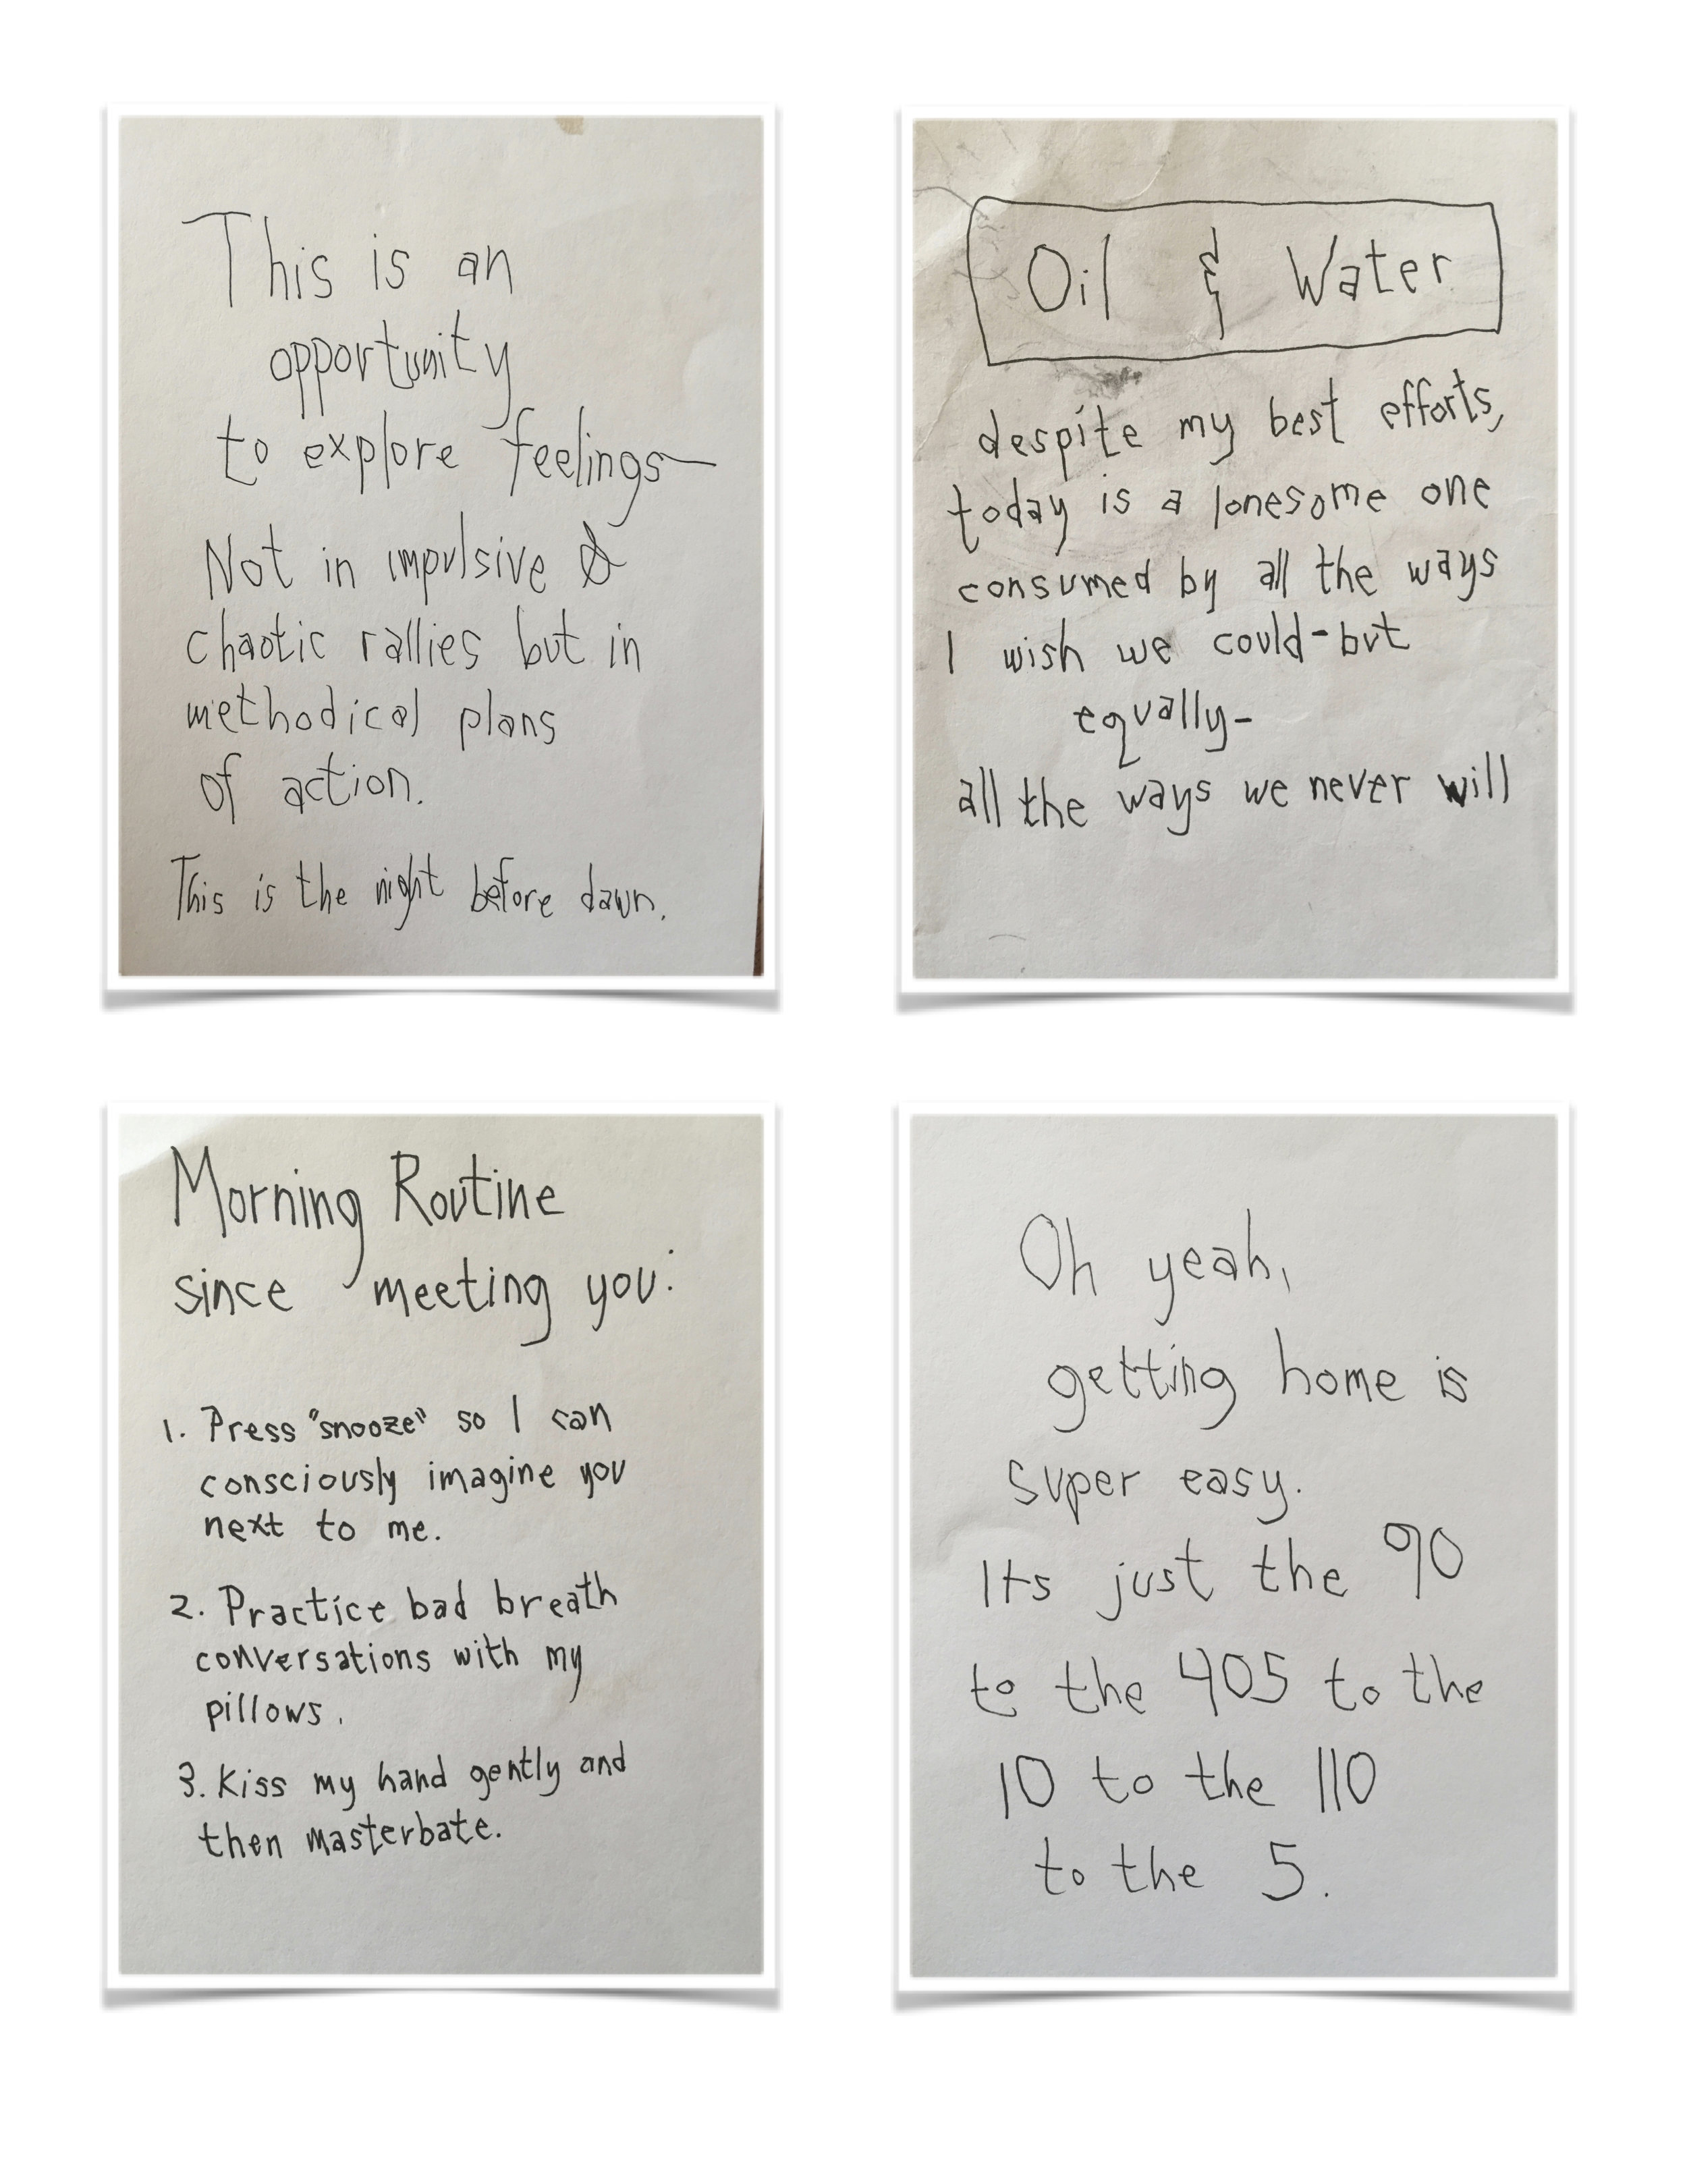 This is an
opportunity
to explore feelings—
Not in impulsive &
chaotic rallies but in
methodical plans
of action.
This is the night before dawn.
Oil & Water
despite my best efforts,
today is a lonesome one
consumed by all the ways
I wish we could-but
equally-
all the ways we never will
Morning Routine
since meeting you:
1. Press "snooze" so I can
consciously imagine you
next to me.
2. Practice bad breath
conversations with my
pillows.
3. Kiss my hand gently and
then masterbate.
Oh yeah,
getting home is
super easy.
Its just the 90
to the 405 to the
10 to the 110
to the 5.